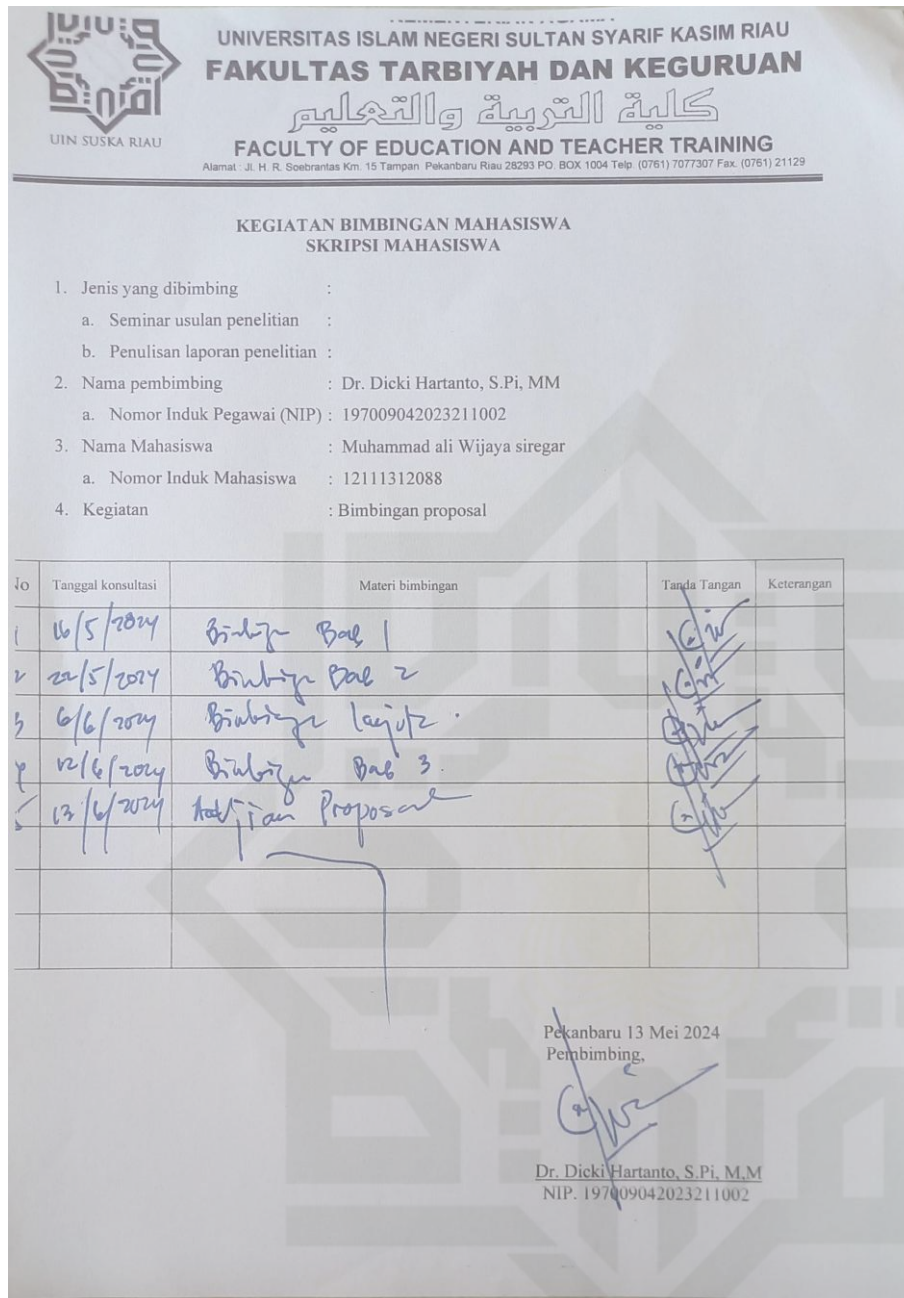 UIN SUSKA RIAU
UNIVERSITAS ISLAM NEGERI SULTAN SYARIF KASIM RIAU
FAKULTAS TARBIYAH DAN KEGURUAN
كلية التربية والتعليم
FACULTY OF EDUCATION AND TEACHER TRAINING
Alamat : Jl. H. R. Soebrantas Km. 15 Tampan Pekanbaru Riau 28293 PO. BOX 1004 Telp. (0761) 7077307 Fax. (0761) 21129
KEGIATAN BIMBINGAN MAHASISWA
SKRIPSI MAHASISWA
1. Jenis yang dibimbing :
a. Seminar usulan penelitian :
b. Penulisan laporan penelitian :
2. Nama pembimbing : Dr. Dicki Hartanto, S.Pi, MM
a. Nomor Induk Pegawai (NIP) : 197009042023211002
3. Nama Mahasiswa : Muhammad ali Wijaya siregar
a. Nomor Induk Mahasiswa : 12111312088
4. Kegiatan : Bimbingan proposal
No Tanggal konsultasi Materi bimbingan Tanda Tangan Keterangan
1 16/5/2024 Bimbingan Bab 1
2 22/5/2024 Bimbingan Bab 2
3 6/6/2024 Bimbingan
4 12/6/2024 Bimbingan Bab 3.
5 13/6/2024 Proposal
Pekanbaru 13 Mei 2024
Pembimbing,
Dr. Dicki Hartanto, S.Pi, M,M
NIP. 197009042023211002